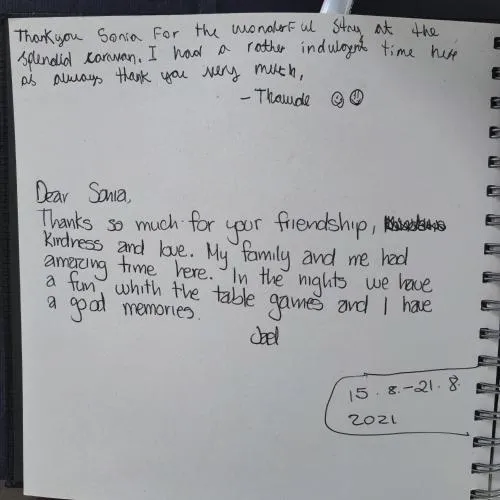 Thankyou Sonia For the wonderFul stay at the
splendid caravan. I had a rather indulgent time here
as always thank you very mutch,
- 
Dear Sonia,
Thanks so much for your friendship,
Kindness and love. My family and me had
amazing time here. In the nights we have
a fun whith the table games and I have
a good memories.
Jael
15.8.-21.8.
2021